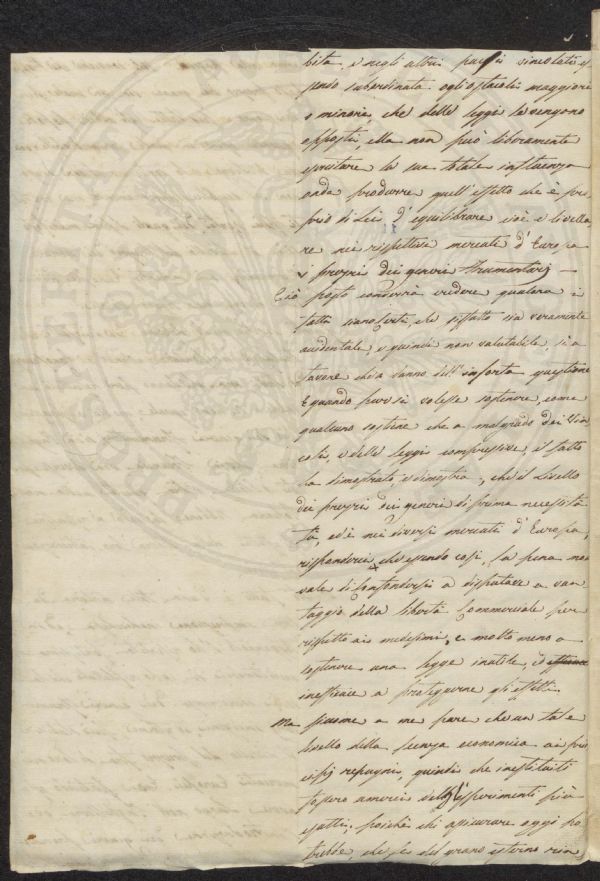 bita, e negli altri paesi vincolati es
sendo subordinata agli ostacoli maggiori
o minori, che dalle leggi le vengono
opposti, ella non può liberamente
esercitare la sua totale influenza
onde produrre quell'effetto che è pro
prio di Lei d'equilibrare cioè e livella
re nei rispettivi mercati d'Europa
i prezzi dei generi frumentarj —
Ciò posto converrà vedere qualora i
fatti siano certi, che siffatto sia veramente
accidentale, e quindi non valutabile, sia
favore che a danno dell'insorta questione
E quando pure si volesse sostenere, come
qualcuno sostiene che a malgrado dei Vin
coli, e delle leggi compressive, il fatto
ha dimostrato, e dimostra, che il Livello
dei prezzi dei generi di prima necessità
ed è nei diversi mercati d'Europa,
risponderei che essendo così, la pena non
vale di confondersi a disputare a van
taggio della libertà Commerciale per
rispetto ai medesimi, e molto meno a
sostenere una legge inutile, ed
inefficace a proteggerne gli effetti.
Ma siccome a me pare che un tale
livello della scienza economica ai prin
cipj repugni, quindi è che
degli esperimenti più
esatti; poichè chi assicurare oggi po
trebbe, che se del grano esterno non